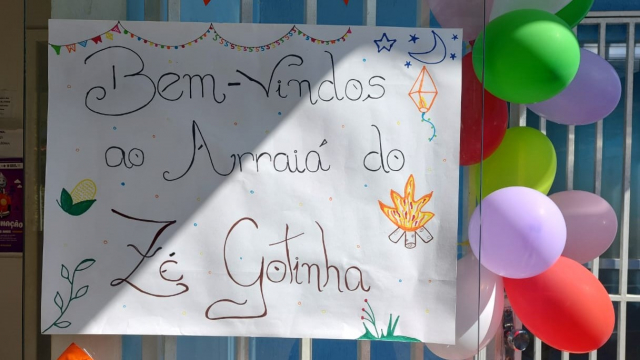 Bem-Vindos
ao Arraiá do
Zé Gotinha